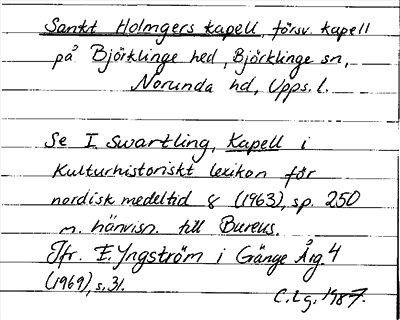 Sankt Holmgers kapell, försv. kapell
på Björklinge hed, Björklinge sn,
Norunda hd, Upps. l.
Se I. Swartling, Kapell i
Kulturhistoriskt lexikon för
nordisk medeltid 8 (1963), sp. 250
m. hänvisn. till Bureus.
Jfr. E. Yngström i Gänge Årg. 4
(1969), s. 31.
C. Lg. 1987.